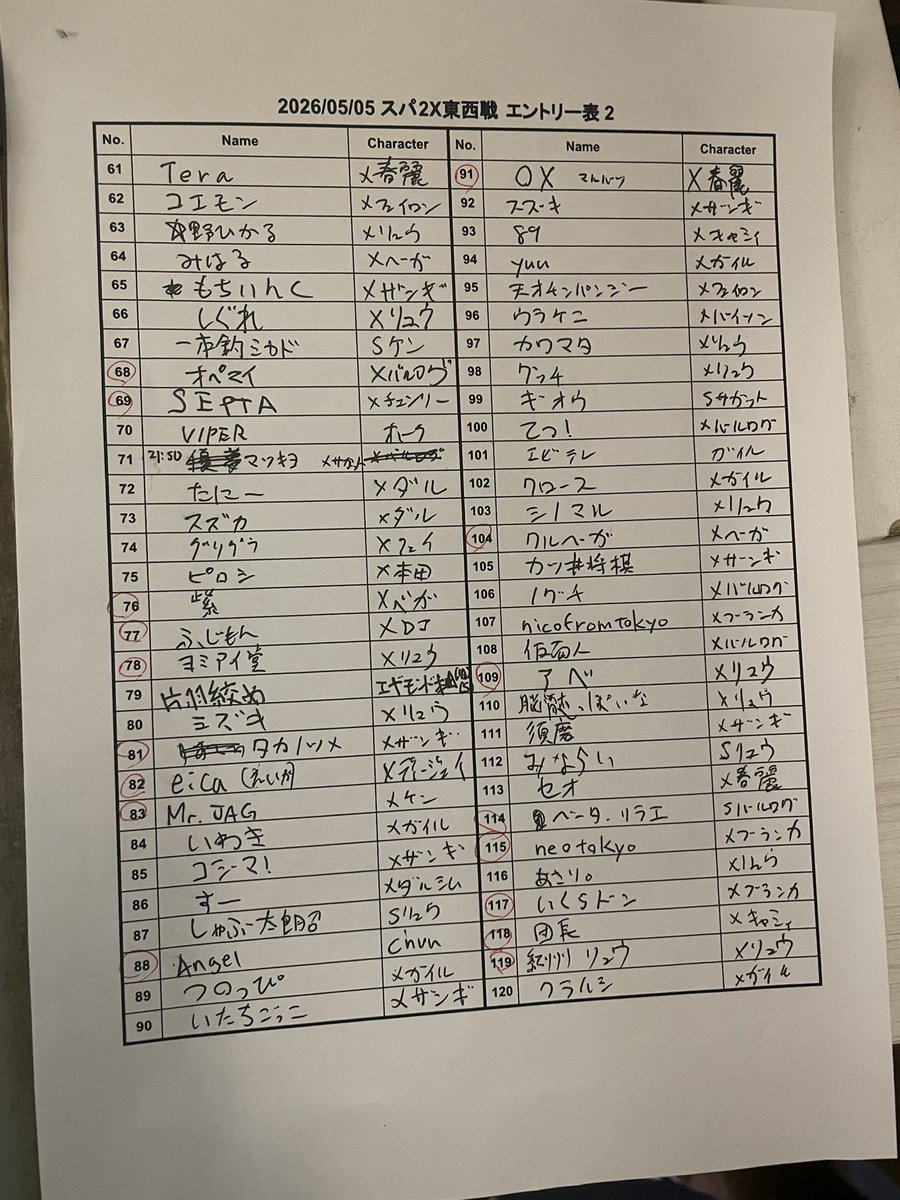 2026/05/05 スパ2X東西戦 エントリー表 2
No. Name Character
61 Tera X春麗
62 コエモン Xフェイロン
63 野ひかる Xリュウ
64 みはる Xベーガ
65 もちいんく Xザンギ
66 しぐれ Xリュウ
67 一本釣ミカド Sケン
68 オペマイ Xバルログ
69 SEPTA Xチュンリー
70 VIPER ホーク
71 21:50 マツキヨ Xサガット
72 たにー Xダル
73 スズカ Xダル
74 グリグラ Xフェイ
75 ピロシ X本田
76 紫 Xベガ
77 ふじもん XDJ
78 ヨミアイ堂 Xリュウ
79 片羽絞め エドモンド本田
80 ミズキ Xリュウ
81 タカノツメ Xザンギ
82 eica (えいか) Xディージェイ
83 Mr. JAG Xケン
84 いわき Xガイル
85 コジーマ! Xザンギ
86 すー Xダルシム
87 しゃぶ太郎 Sリュウ
88 Angel Chun
89 つのっぴ Xガイル
90 いたちごっこ Xザンギ
No. Name Character
91 OX マルバツ X春麗
92 スズキ Xザンギ
93 89 Xキャミィ
94 yuu Xガイル
95 天才チンパンジー Xフェイロン
96 ウラケニ Xバイソン
97 カワマタ Xリュウ
98 グッチ Xリュウ
99 ギオウ Sサガット
100 てつ! Xバルログ
101 エビテレ ガイル
102 クロース Xガイル
103 シノマル Xリュウ
104 クルベーガ Xベーガ
105 カツ丼将棋 Xザーンギ
106 ノグチ Xバルログ
107 nicofromtokyo Xブランカ
108 仮面人 Xバルログ
109 アベ Xリュウ
110 脳髄っぽいな Xリュウ
111 須磨 Xザンギ
112 みならい Sリュウ
113 セオ X春麗
114 ベータ・リラエ Sバルログ
115 neotokyo Xブーランカ
116 あさり。 Xリュウ
117 いくらドン Xブランカ
118 団長 Xキャミィ
119 紀州リュウ Xリュウ
120 クラハシ Xガイル